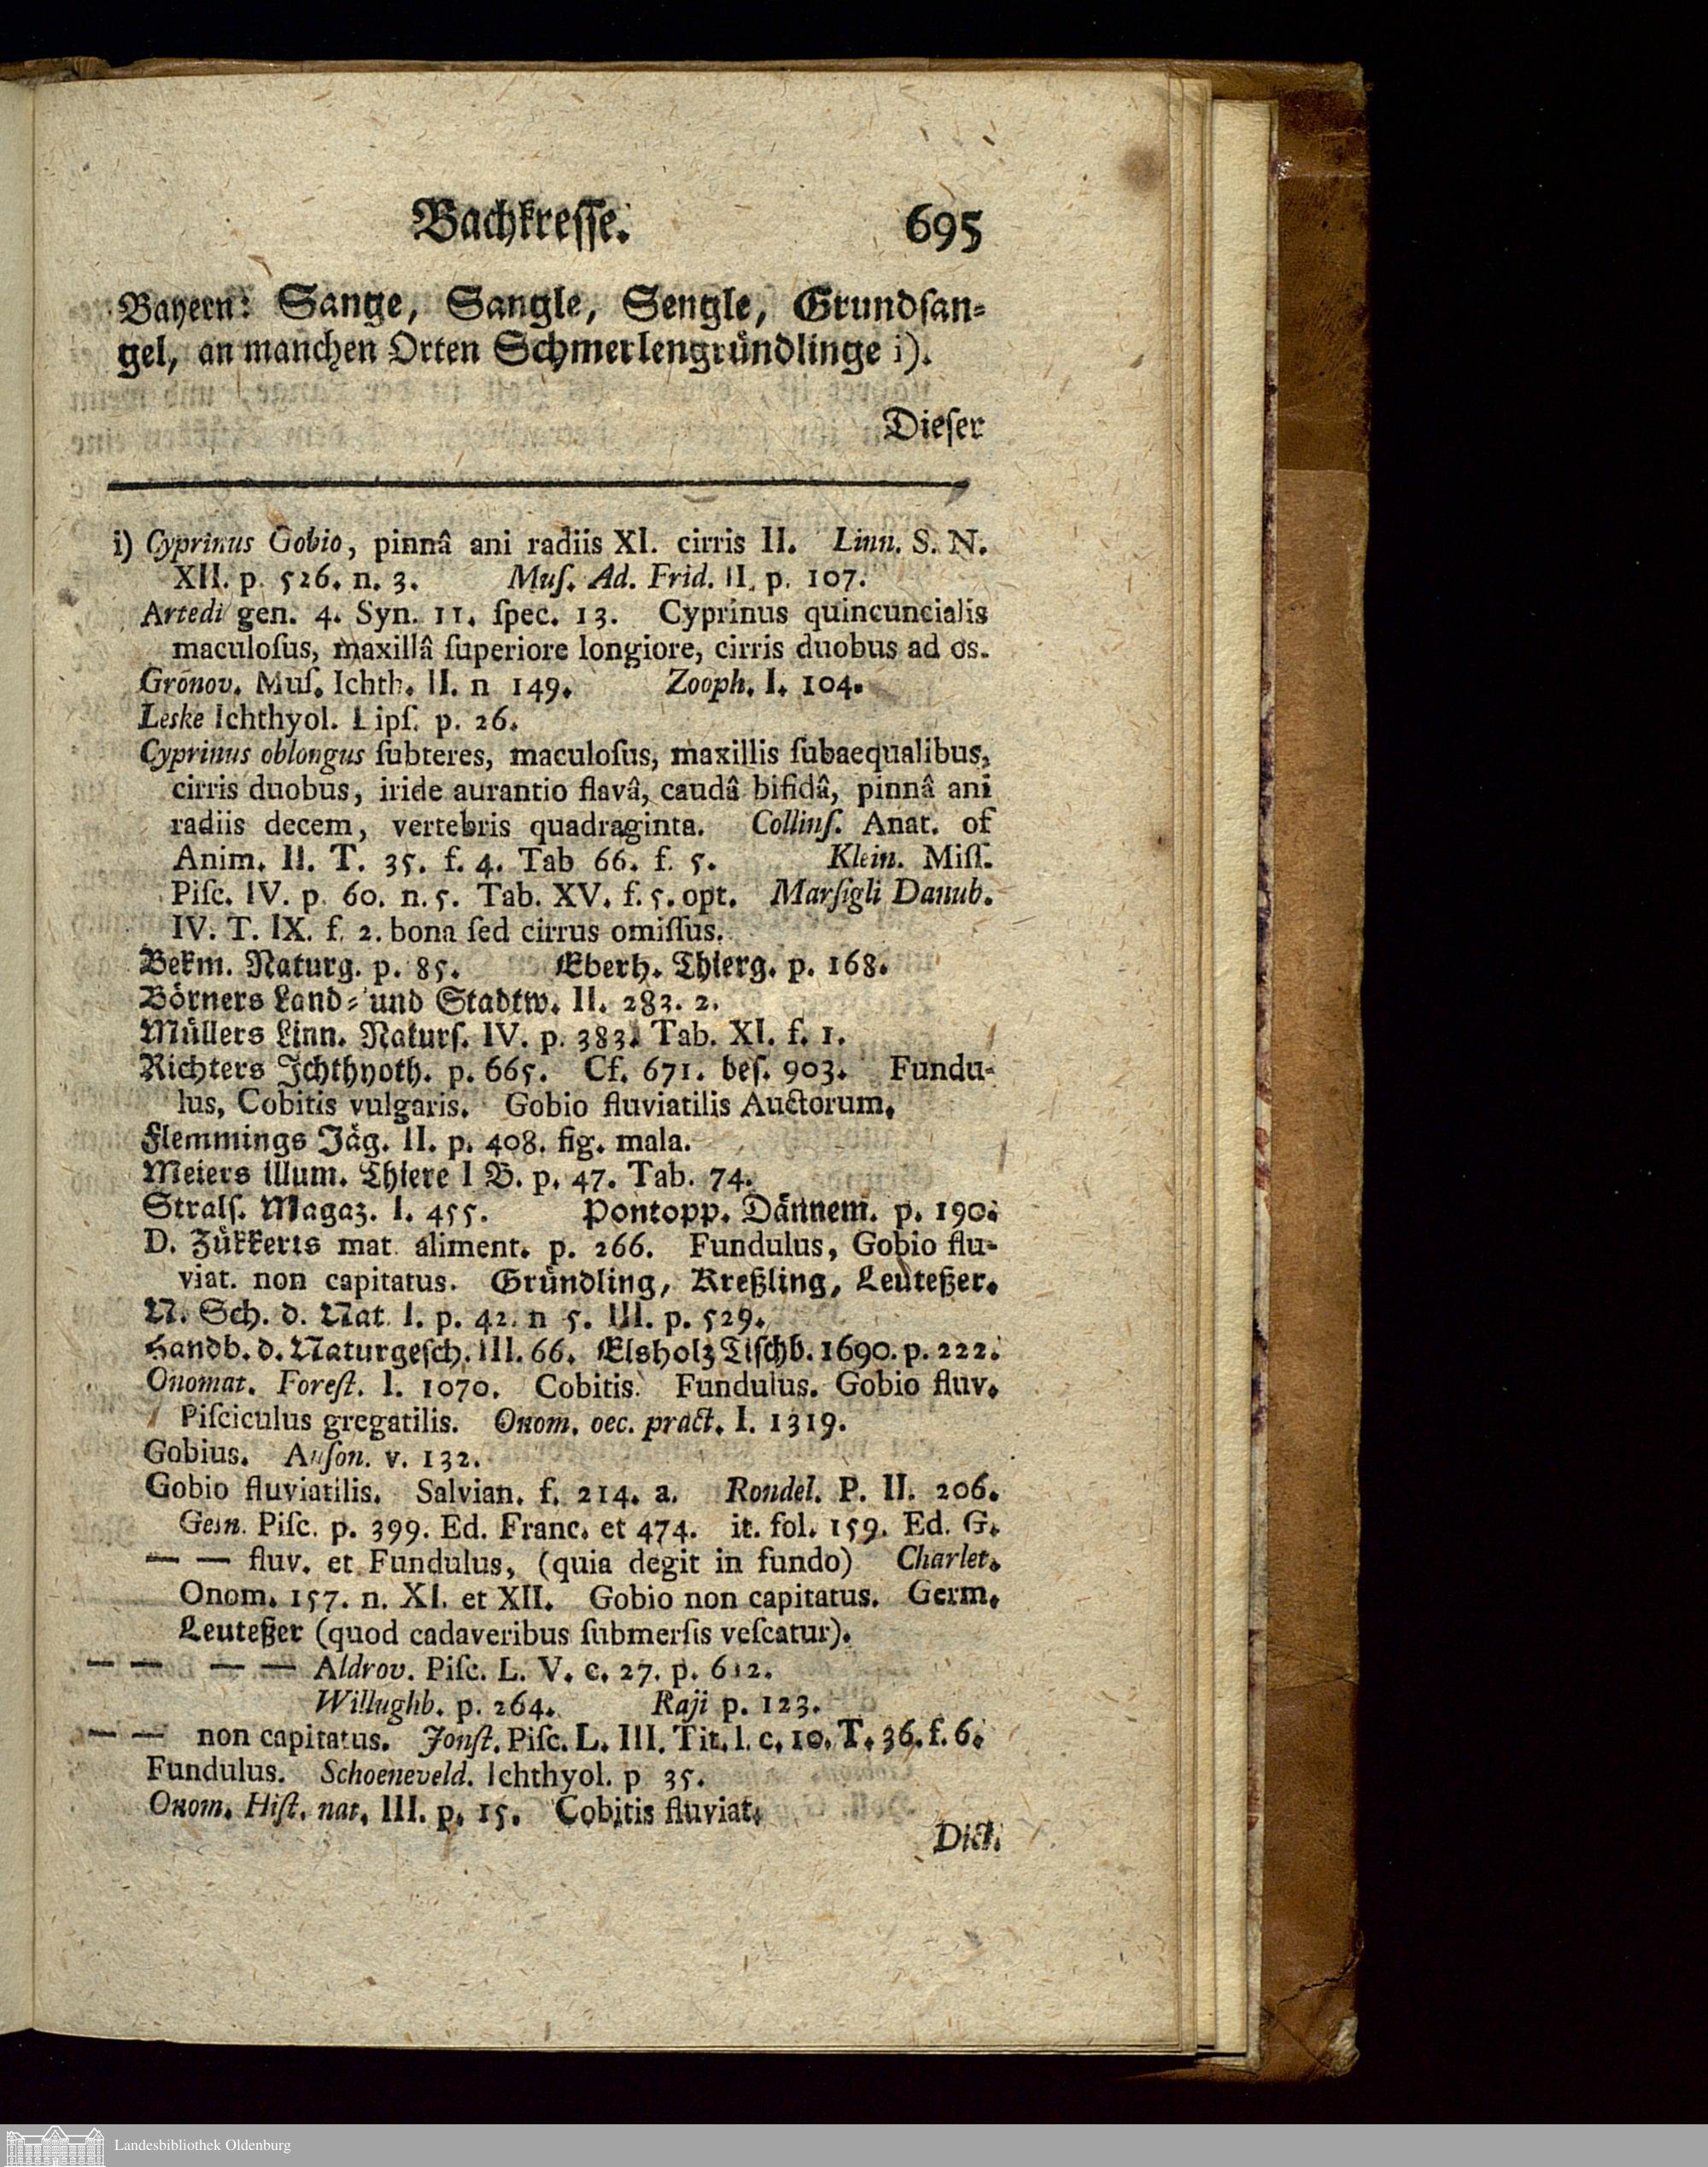 Bachkresse. 695
Bayern: Sange, Sangle, Sengle, Grundsan-
gel, an manchen Orten Schmerlengründlinge i).
Dieser
i) Cyprinus Gobio, pinnâ ani radiis XI. cirris II. Linn. S. N.
XII. p. 526. n. 3. Muſ. Ad. Frid. II. p. 107.
Artedi gen. 4. Syn. 11. ſpec. 13. Cyprinus quincuncialis
maculoſus, maxillâ ſuperiore longiore, cirris duobus ad os.
Gronov. Muſ. Ichth. II. n 149. Zooph. I. 104.
Leske Ichthyol. Lipſ. p. 26.
Cyprinus oblongus ſubteres, maculoſus, maxillis ſubaequalibus,
cirris duobus, iride aurantio flavâ, caudâ bifidâ, pinnâ ani
radiis decem, vertebris quadraginta. Collinſ. Anat. of
Anim. II. T. 35. f. 4. Tab 66. f. 5. Klein. Miſſ.
Piſc. IV. p. 60. n. 5. Tab. XV. f. 5. opt. Marſigli Danub.
IV. T. IX. f. 2. bona ſed cirrus omiſſus.
Bekm. Naturg. p. 85. Eberh. Thierg. p. 168.
Börners Land- und Stadtw. II. 283. 2.
Müllers Linn. Naturſ. IV. p. 383. Tab. XI. f. 1.
Richters Ichthyoth. p. 665. Cf. 671. beſ. 903. Fundu-
lus, Cobitis vulgaris. Gobio fluviatilis Auctorum.
Flemmings Jäg. II. p. 408. fig. mala.
Meiers illum. Thiere I B. p. 47. Tab. 74.
Stralſ. Magaz. I. 455. Pontopp. Dännem. p. 190.
D. Zükkerts mat. aliment. p. 266. Fundulus, Gobio flu-
viat. non capitatus. Gründling, Kreßling, Leuteßer.
N. Sch. d. Nat. I. p. 42. n 5. III. p. 529.
Handb. d. Naturgeſch. III. 66. Elsholz Tiſchb. 1690. p. 222.
Onomat. Foreſt. I. 1070. Cobitis. Fundulus. Gobio fluv.
Piſciculus gregatilis. Onom. oec. pract. I. 1319.
Gobius. Auſon. v. 132.
Gobio fluviatilis. Salvian. f. 214. a. Rondel. P. II. 206.
Gesn. Piſc. p. 399. Ed. Franc. et 474. it. fol. 159. Ed. G.
— — fluv. et Fundulus, (quia degit in fundo) Charlet.
Onom. 157. n. XI. et XII. Gobio non capitatus. Germ.
Leuteßer (quod cadaveribus ſubmerſis veſcatur).
— — — — Aldrov. Piſc. L. V. c. 27. p. 612.
Willughb. p. 264. Raji p. 123.
— — non capitatus. Jonſt. Piſc. L. III. Tit. I. c. 10. T. 36. f. 6.
Fundulus. Schoeneveld. Ichthyol. p 35.
Onom. Hiſt. nat. III. p. 15. Cobitis fluviat.
Dict.
Landesbibliothek Oldenburg